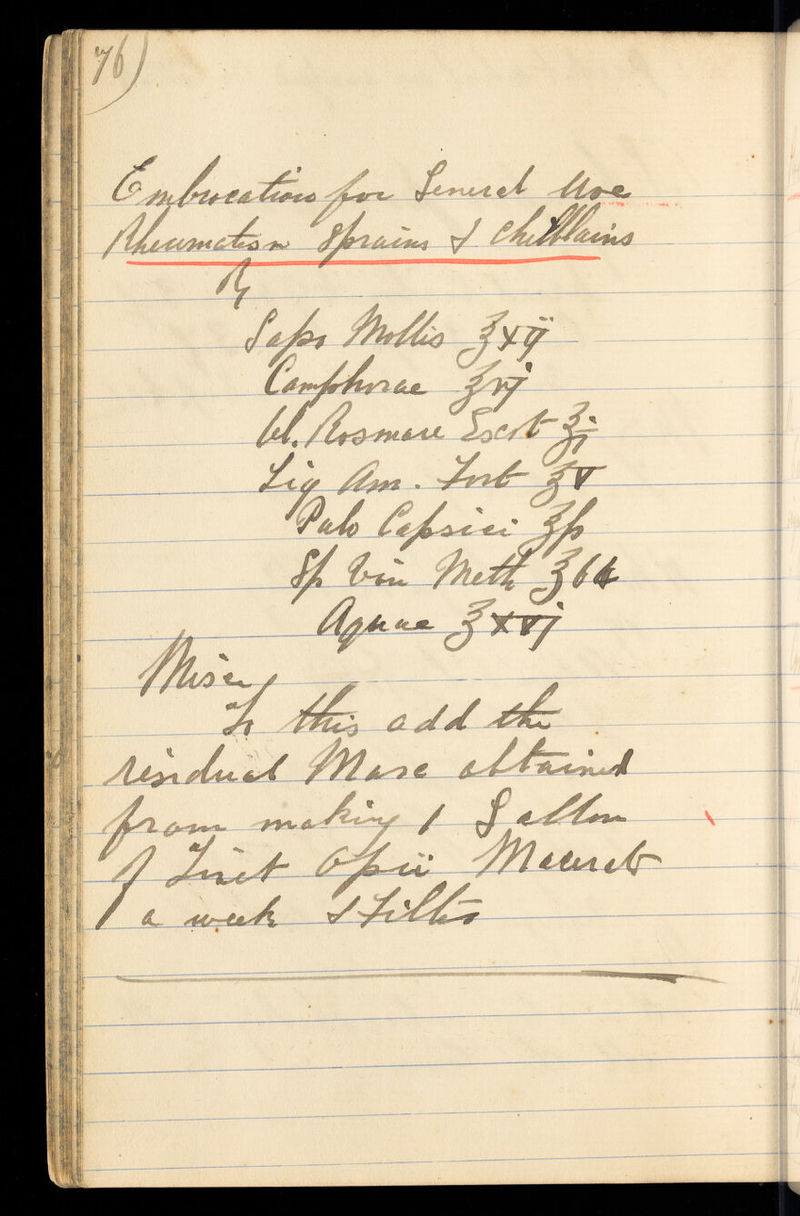 76)
Embrocation for General Use
Rheumatism Sprains & Chilblains
℞
Sapo Mollis ℥xij
Camphorae ℥vj
Ol. Rosmare Excot ℥j
Liq Am. Fort ℥v
Pulv Capsici ℥ß
Sp Vin Meth ℥64
Aquae ℥xvj
Misce
To this add the
residual Marc obtained
from making 1 Gallon
of Tinct Opii Macerate
a week & Filter